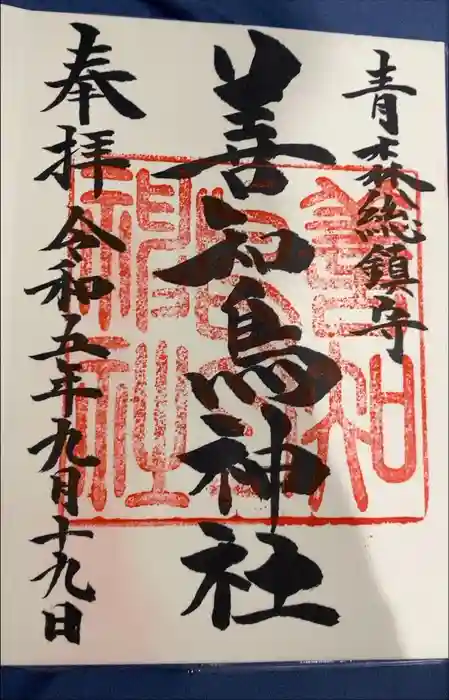 青森総鎮守
善知鳥神社
奉拝 令和五年九月十九日
善知鳥神社